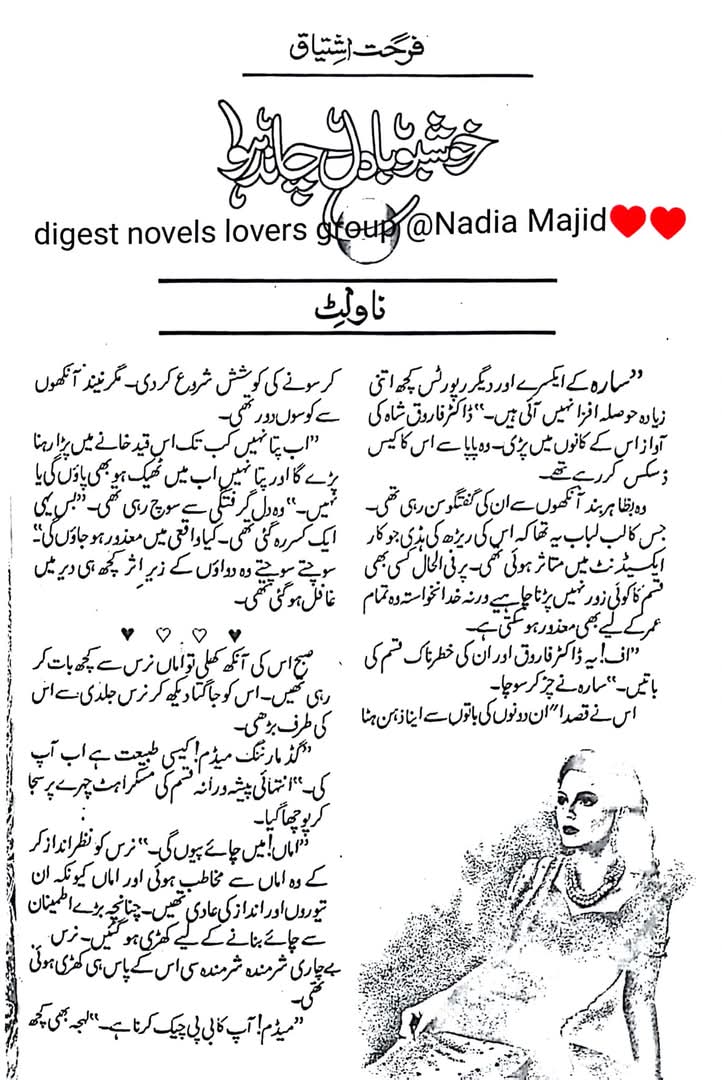 فرحت اشتیاق
خوشبو بادل چاند ہوا
digest novels lovers group @Nadia Majid❤️❤️
ناولٹ
”سارہ کے ایکسرے اور دیگر رپورٹس کچھ اتنی
زیادہ حوصلہ افزا نہیں آئی ہیں۔“ ڈاکٹر فاروق شاہ کی
آواز اس کے کانوں میں پڑی۔ وہ پاپا سے اس کا کیس
ڈسکس کر رہے تھے۔
وہ بظاہر بند آنکھوں سے ان کی گفتگو سن رہی تھی۔
جس کا لب لباب یہ تھا کہ اس کی ریڑھ کی ہڈی جو کار
ایکسیڈنٹ میں متاثر ہوئی تھی۔ پر فی الحال کسی بھی
قسم کا کوئی زور نہیں پڑنا چاہیے ورنہ خدانخواستہ وہ تمام
عمر کے لیے بھی معذور ہو سکتی ہے۔
”اف! یہ ڈاکٹر فاروق اور ان کی خطرناک قسم کی
باتیں۔“ سارہ نے چڑ کر سوچا۔
اس نے قصداً ان دونوں کی باتوں سے اپنا ذہن ہٹا
کر سونے کی کوشش شروع کر دی۔ مگر نیند آنکھوں
سے کوسوں دور تھی۔
”اب پتا نہیں کب تک اس قید خانے میں پڑا رہنا
پڑے گا اور پتا نہیں اب میں ٹھیک ہو بھی پاؤں گی یا
نہیں۔“ وہ دل گرفتگی سے سوچ رہی تھی۔ ”بس یہی
ایک کسر رہ گئی تھی۔ کیا واقعی میں معذور ہو جاؤں گی“۔
سوچتے سوچتے وہ دواؤں کے زیر اثر کچھ ہی دیر میں
غافل ہو گئی تھی۔
♥ ♡ ♡ ♥
صبح اس کی آنکھ کھلی تو اماں نرس سے کچھ بات کر
رہی تھیں۔ اس کو جاگتا دیکھ کر نرس جلدی سے اس
کی طرف بڑھی۔
”گڈ مارننگ میڈم! کیسی طبیعت ہے اب آپ
کی۔“ انتہائی پیشہ ورانہ قسم کی مسکراہٹ چہرے پر سجا
کر پوچھا گیا۔
”اماں! میں چائے پیوں گی۔“ نرس کو نظر انداز کر
کے وہ اماں سے مخاطب ہوئی اور اماں کیونکہ ان
تیوروں اور انداز کی عادی تھیں۔ چنانچہ بڑے اطمینان
سے چائے بنانے کے لیے کھڑی ہو گئیں۔ نرس
بے چاری شرمندہ شرمندہ سی اس کے پاس ہی کھڑی ہوئی
تھی۔
”میڈم! آپ کا بی پی چیک کرنا ہے۔“ لہجہ بھی کچھ